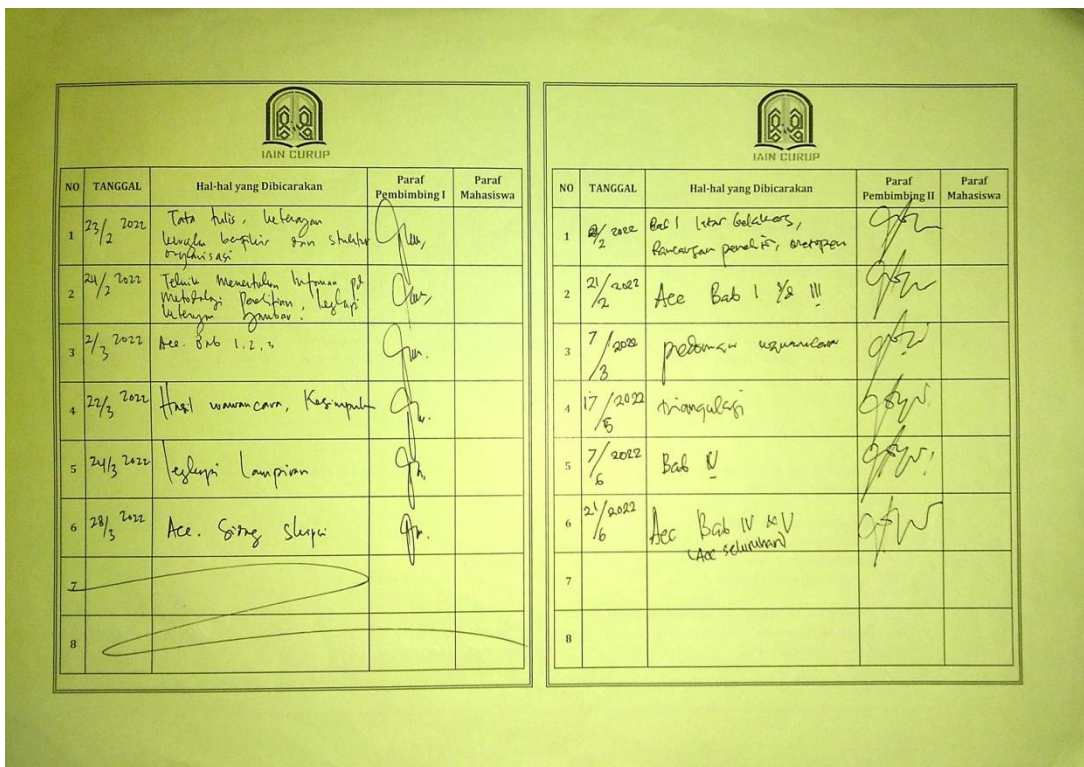 IAIN CURUP
NO TANGGAL Hal-hal yang Dibicarakan Paraf Pembimbing I Paraf Mahasiswa
1 23/2 2022 Tata tulis, keterangan
kerangka berpikir dan struktur
organisasi
2 24/2 2022 Teknik Menentukan Informan pd
Metodologi Penelitian, lengkapi
keterangan gambar.
3 2/3 2022 Acc. Bab 1.2.3
4 22/3 2022 Hasil wawancara, Kesimpulan
5 24/3 2022 lengkapi Lampiran
6 28/3 2022 Acc. Sidang Skripsi
7
8
IAIN CURUP
NO TANGGAL Hal-hal yang Dibicarakan Paraf Pembimbing II Paraf Mahasiswa
1 /2 2022 Bab I latar belakang,
Rancangan penelitian, metopen
2 21/2 2022 Acc Bab I s/d III
3 7/3 2022 pedoman wawancara
4 17/5 2022 triangulasi
5 7/6 2022 Bab IV
6 21/6 2022 Acc Bab IV & V
(Acc seluruhan)
7
8